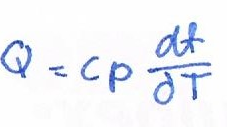 Q = Cp dt/∂T